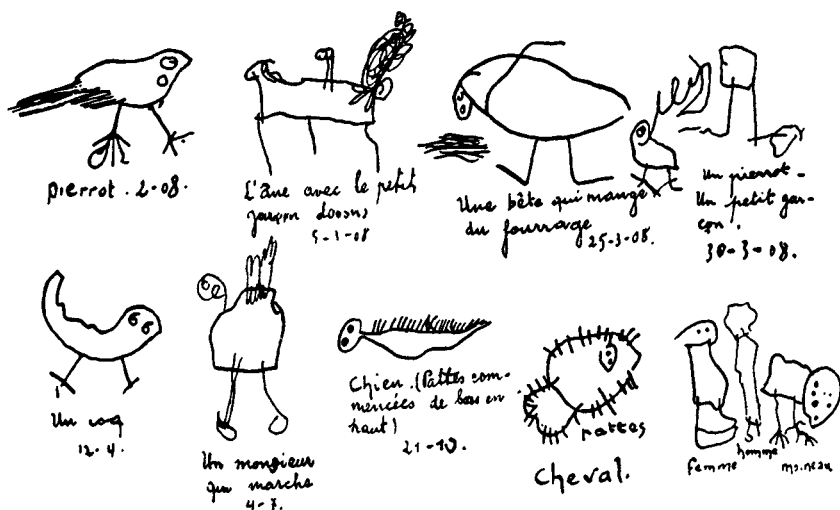 pierrot. 2-08.
L'âne avec le petit
garçon dessus
5-1-08
Une bête qui mange
du fourrage
25-3-08.
Un pierrot-
Un petit gar-
çon.
30-3-08.
Un coq
12-4.
Un monsieur
qui marche
4-7.
Chien. (Pattes com-
mencées de bas en
haut)
21-10.
pattes
Cheval.
femme
homme
moineau